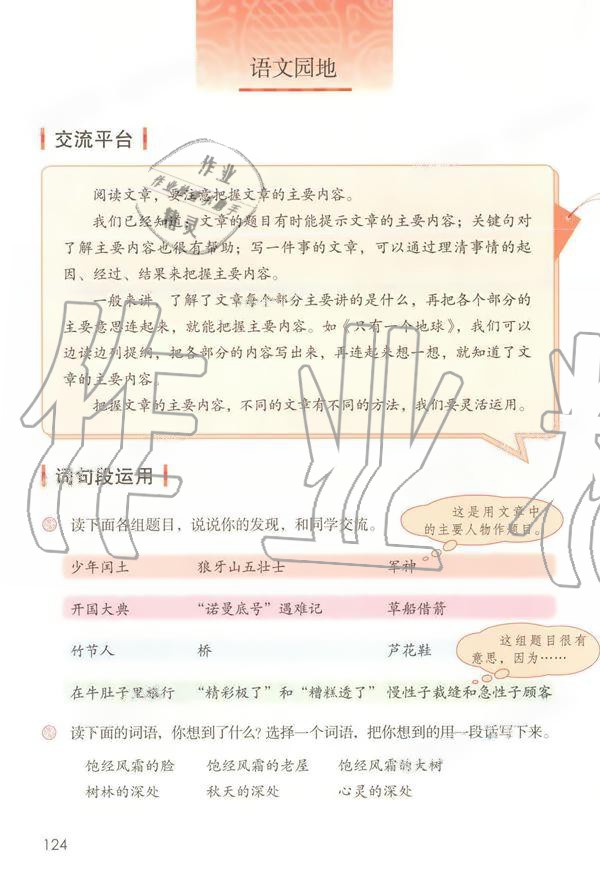 语文园地
交流平台
阅读文章，要注意把握文章的主要内容。
我们已经知道：文章的题目有时能提示文章的主要内容；关键句对
了解主要内容也很有帮助；写一件事的文章，可以通过理清事情的起
因、经过、结果来把握主要内容。
一般来讲，了解了文章每个部分主要讲的是什么，再把各个部分的
主要意思连起来，就能把握主要内容。如《只有一个地球》，我们可以
边读边列提纲，把各部分的内容写出来，再连起来想一想，就知道了文
章的主要内容。
把握文章的主要内容，不同的文章有不同的方法，我们要灵活运用。
词句段运用
这是用文章中
的主要人物作题目。
读下面各组题目，说说你的发现，和同学交流。
少年闰土 狼牙山五壮士 军神
开国大典 “诺曼底号”遇难记 草船借箭
竹节人 桥 芦花鞋
这组题目很有
意思，因为……
在牛肚子里旅行 “精彩极了”和“糟糕透了” 慢性子裁缝和急性子顾客
读下面的词语，你想到了什么？选择一个词语，把你想到的用一段话写下来。
饱经风霜的脸 饱经风霜的老屋 饱经风霜的大树
树林的深处 秋天的深处 心灵的深处
124
作业
精灵
作业